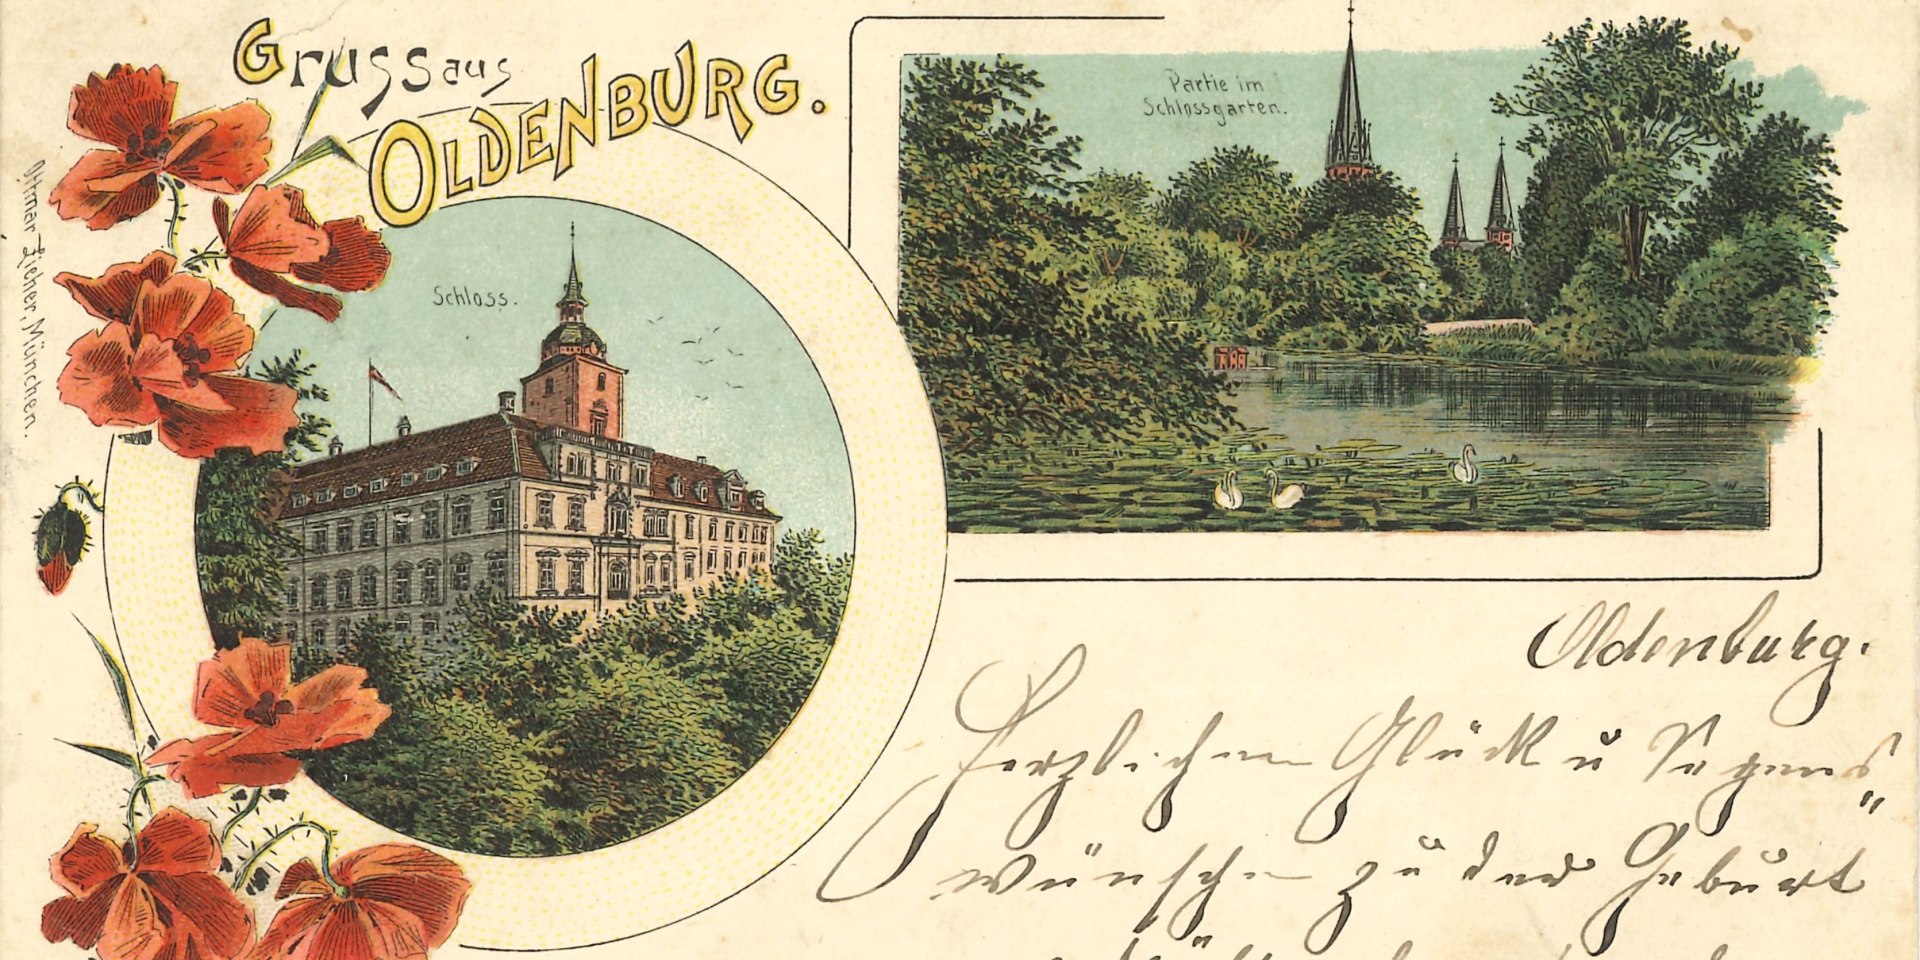 Gruss aus
OLDENBURG.
Schloss.
Partie im
Schlossgarten.
Ottmar Zieher, München.
Oldenburg.
Herzlichen Glück u Segens"
wünsche zu der Geburt